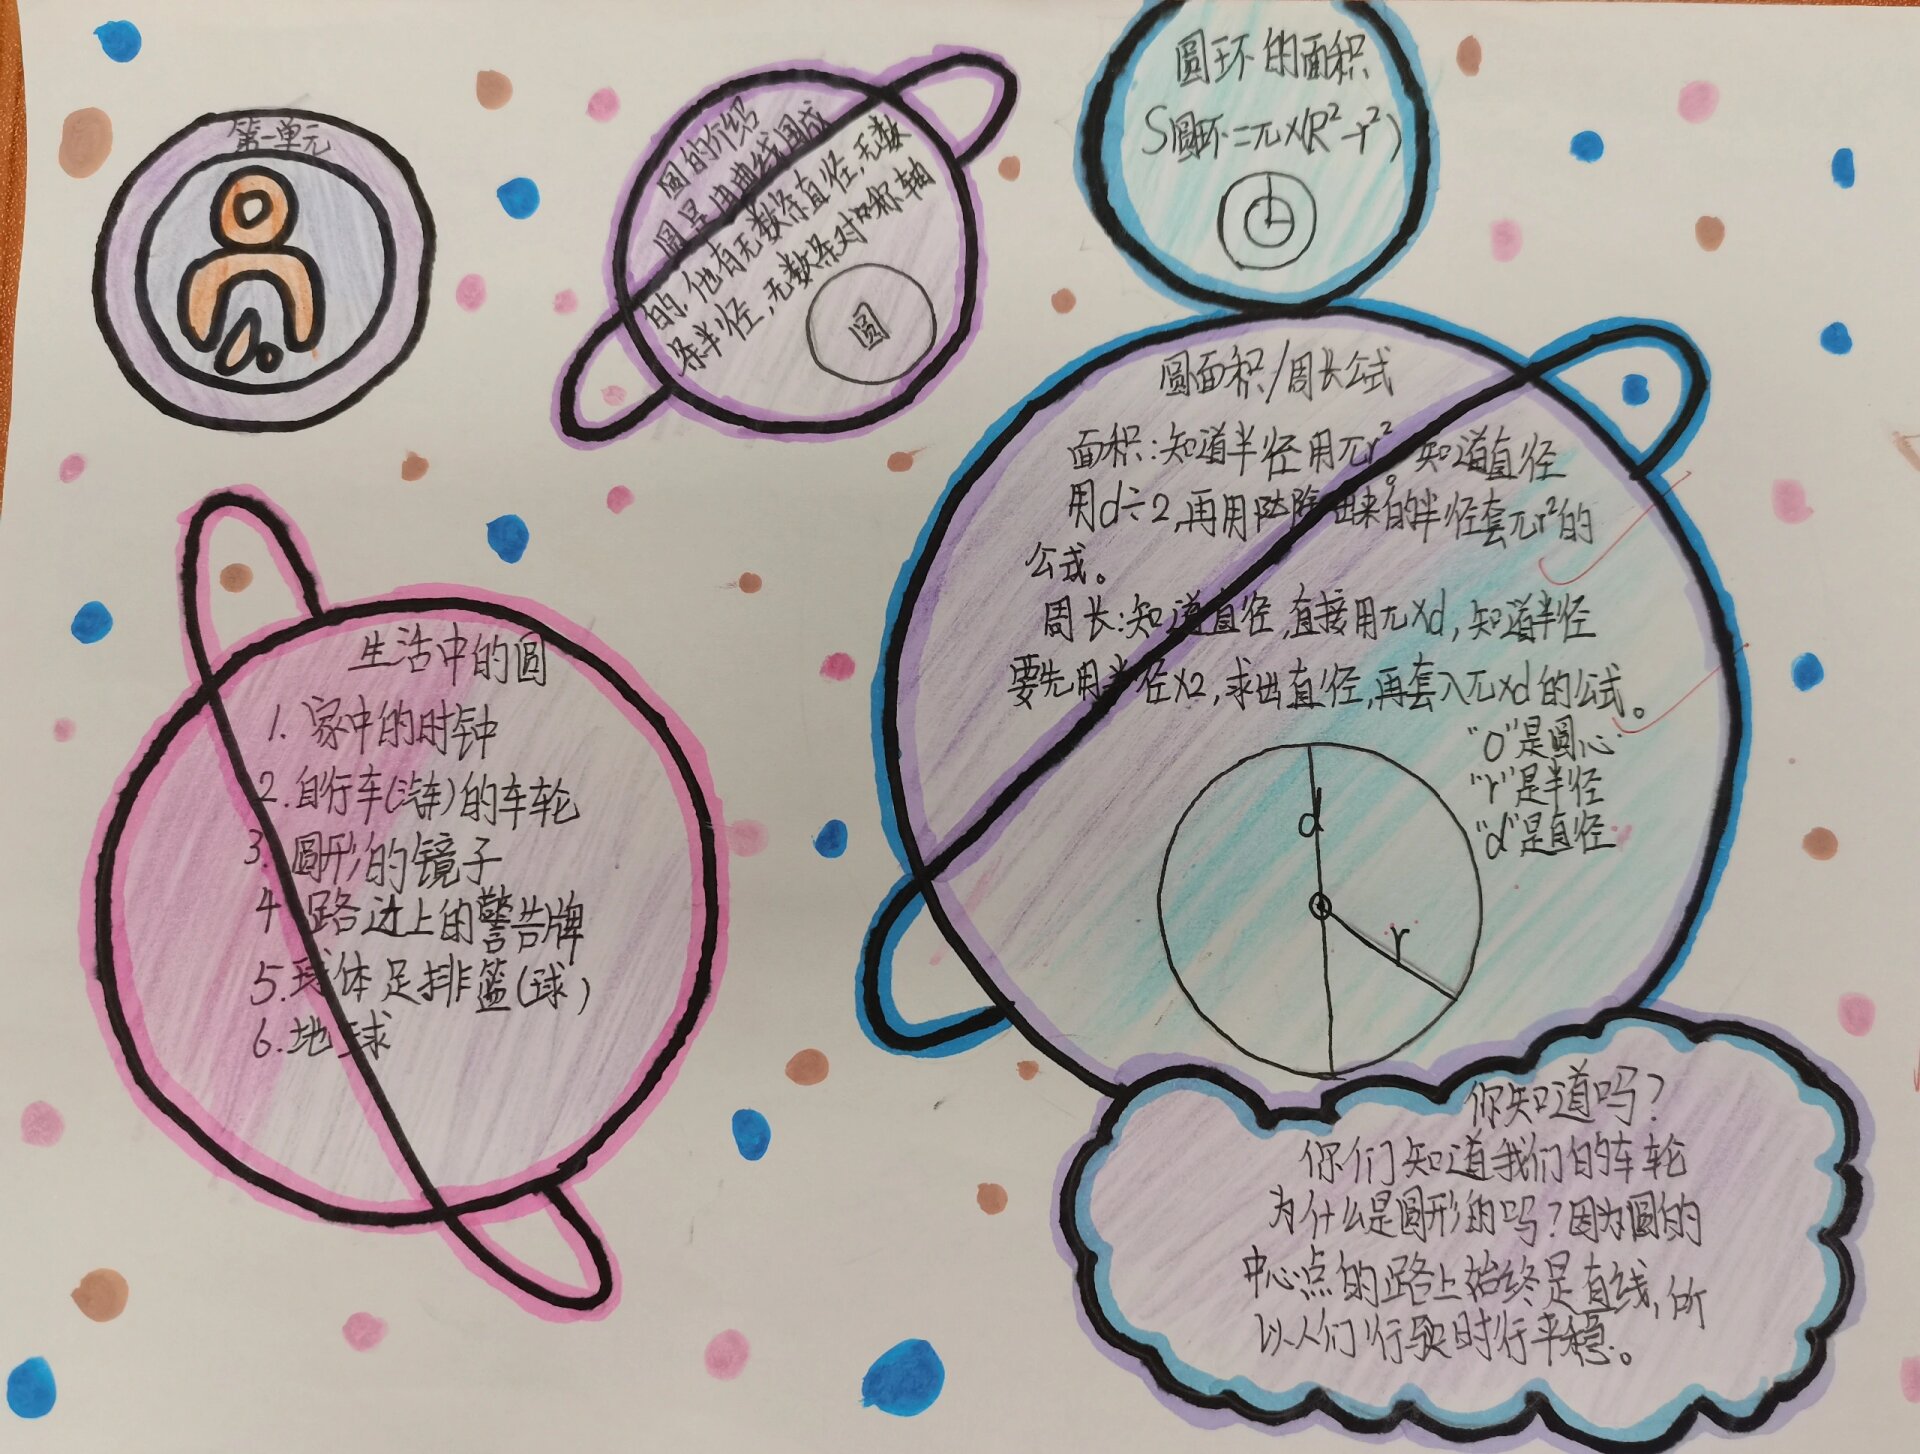 第一单元
圆的介绍
圆是由曲线围成
的.他有无数条直径,无数
条半径,无数条对称轴
圆
圆环的面积
S圆环=π×(R²-r²)
圆面积/周长公式
面积:知道半径用πr²。知道直径
用d÷2,再用 除出来的半径套πr²的
公式。
周长:知道直径,直接用π×d,知道半径
要先用半径×2,求出直径,再套入π×d的公式。
"O"是圆心
"r"是半径
"d"是直径
d
r
生活中的圆
1.家中的时钟
2.自行车(汽车)的车轮
3.圆形的镜子
4.路边上的警告牌
5.球体足排篮(球)
6.地球
你知道吗?
你们知道我们的车轮
为什么是圆形的吗?因为圆的
中心点的路上始终是直线,所
以人们行驶时行平稳。